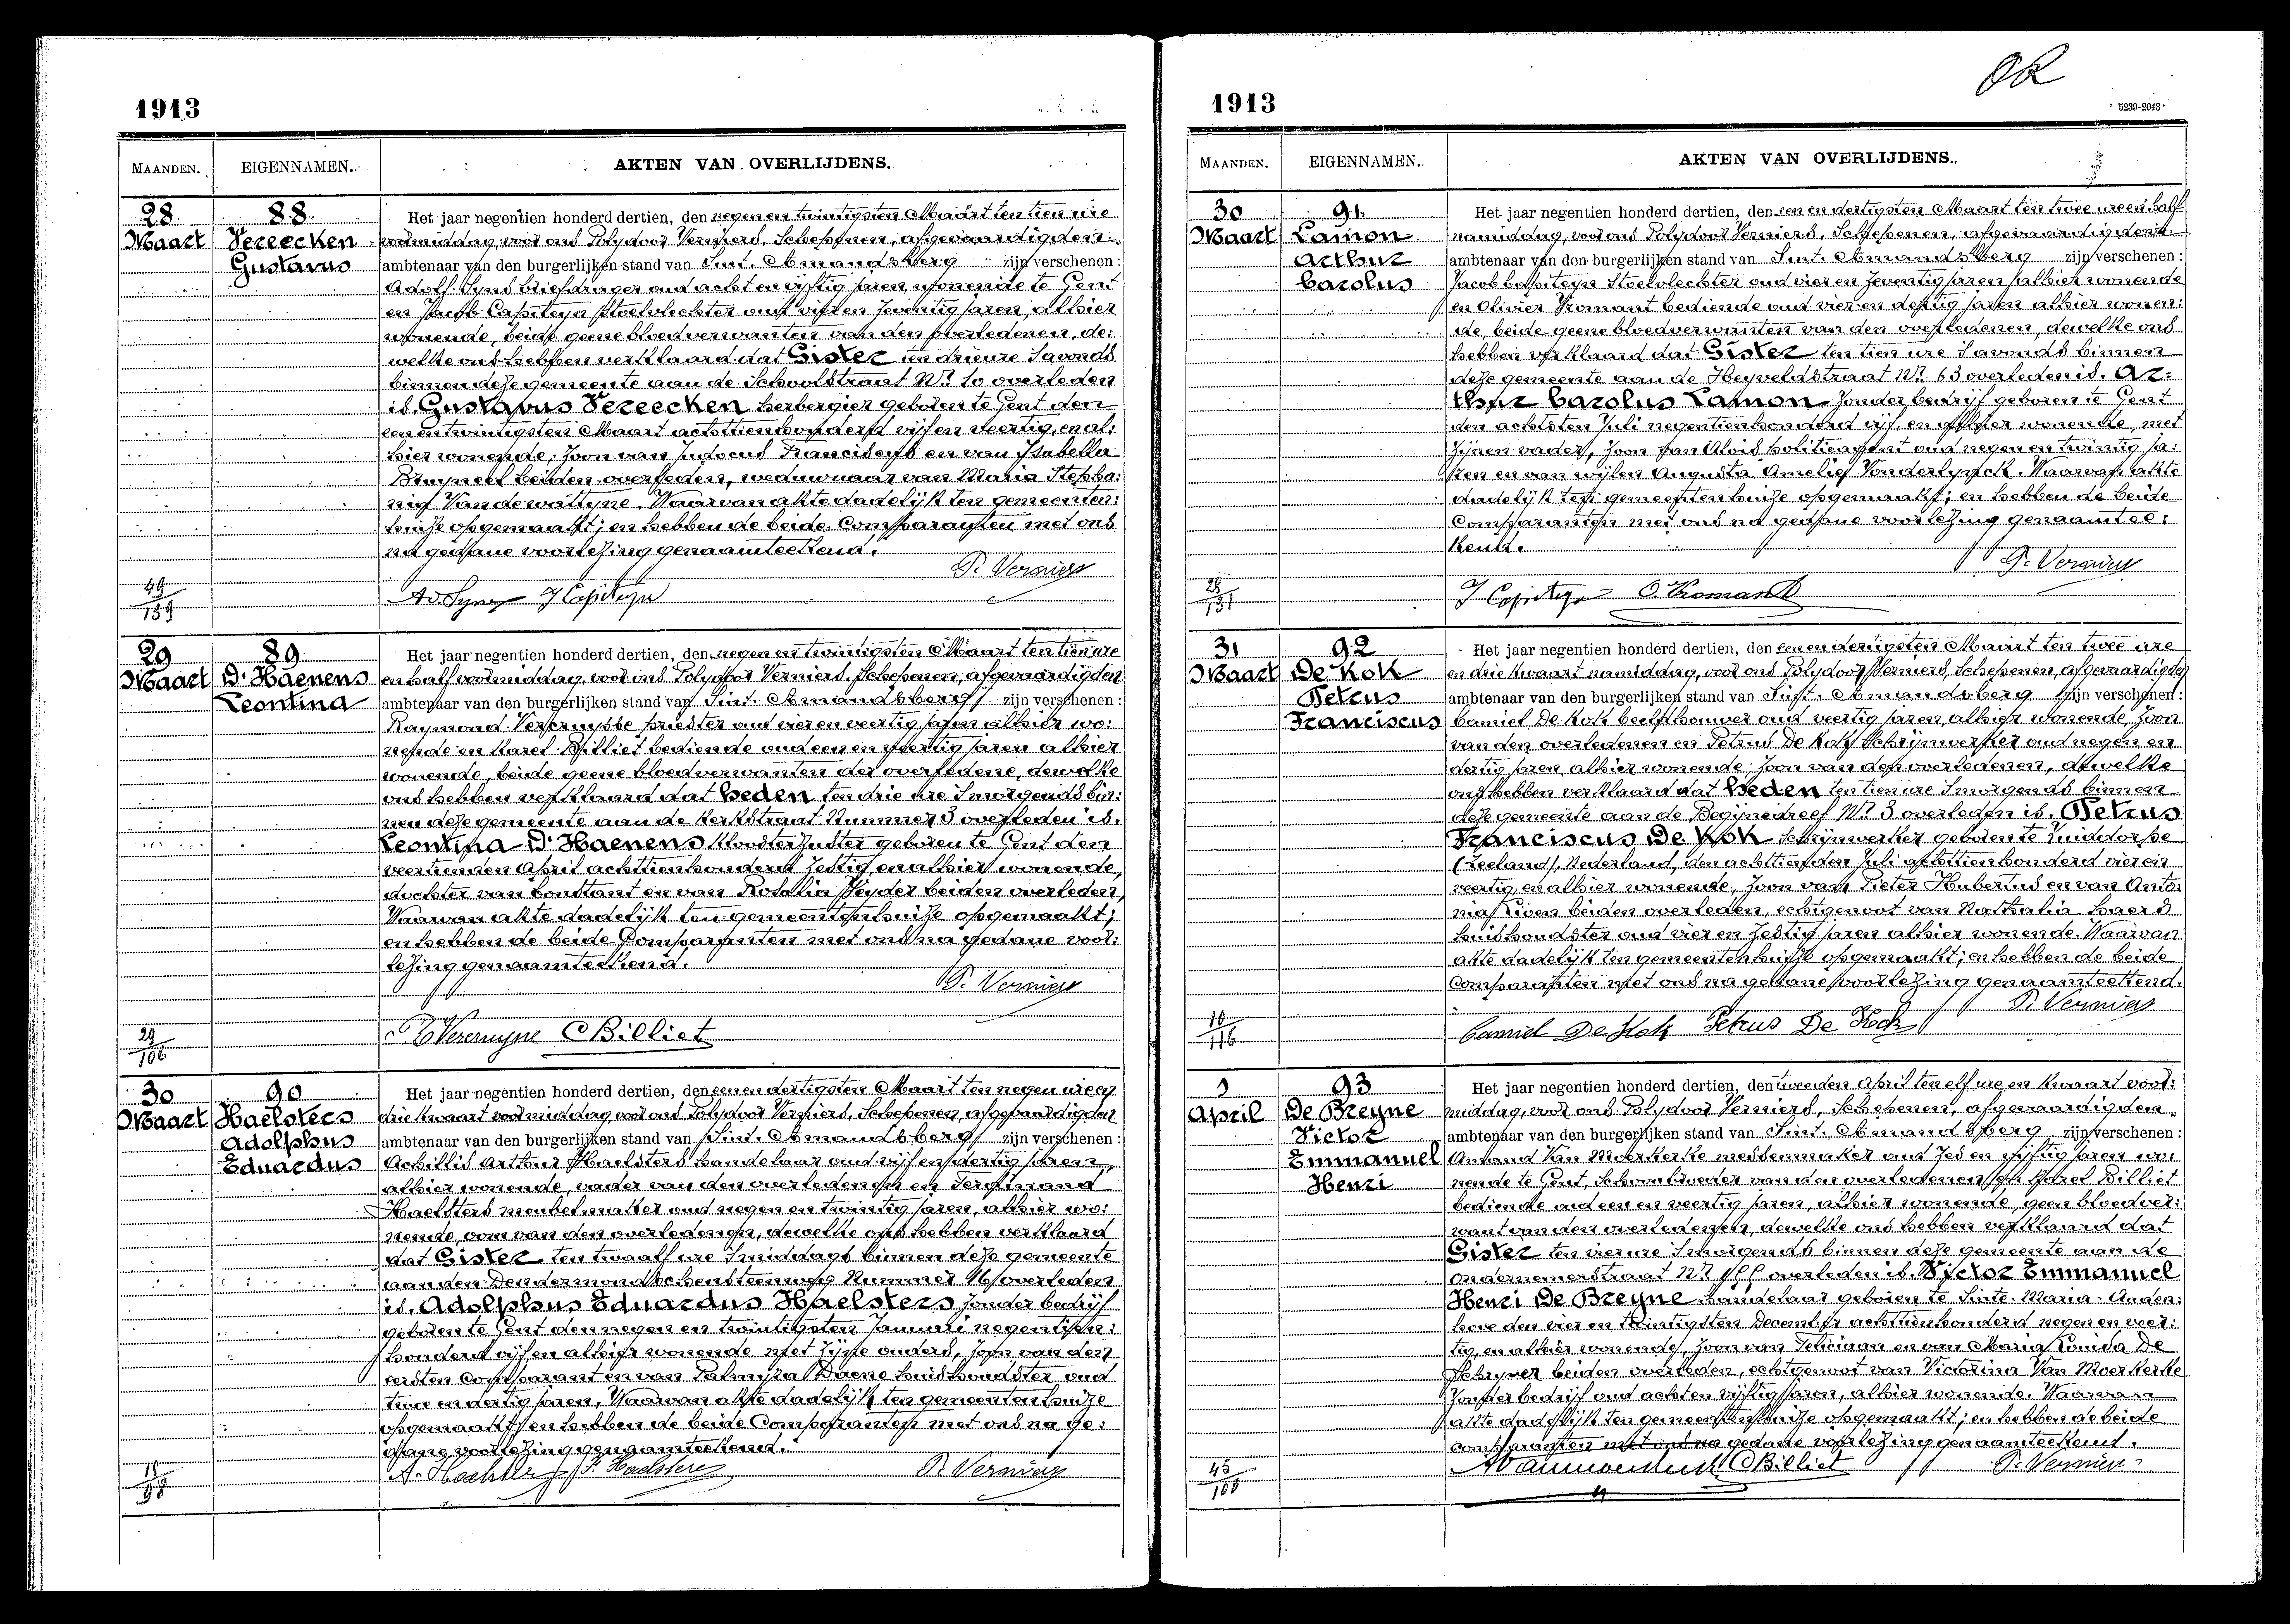 1913
MAANDEN. EIGENNAMEN. AKTEN VAN OVERLIJDENS.
28 Maart
88 Vereecken Gustavus
Het jaar negentien honderd dertien, den negen en twintigsten Maart ten tien ure
voormiddag, voor ons Polydoor Verniers, Schepenen, afgevaardigden
ambtenaar van den burgerlijken stand van Sint-Amandsberg zijn verschenen:
Adolf Syns briefdrager oud acht en vijftig jaren, wonende te Gent
en Jacob Capiteyn stoelvlechter oud vier en zeventig jaren, alhier
wonende, beide geene bloedverwanten van den overledenen, de:
welke ons hebben verklaard dat Gister ten drie ure 's avonds
binnen deze gemeente aan de Schoolstraat Nr. 10 overleden
is, Gustavus Vereecken herbergier geboren te Gent den
een en twintigsten Maart achttienhonderd vijf en veertig, en al:
hier wonende, zoon van Judocus Franciscus en van Isabella
Bruyneel beiden overleden, weduwnaar van Maria Stepha:
nie Vandewattyne. Waarvan akte dadelijk ten gemeenten:
huize opgemaakt; en hebben de beide Comparanten met ons
na gedane voorlezing genaamteekend.
P. Verniers
Ad. Syns J Capiteyn
49/159
29 Maart
89 D'Haenens Leontina
Het jaar negentien honderd dertien, den negen en twintigsten Maart ten tien ure
en half voormiddag, voor ons Polydoor Verniers, Schepenen, afgevaardigden
ambtenaar van den burgerlijken stand van Sint-Amandsberg zijn verschenen:
Raymond Vercruysse priester oud vier en veertig jaren alhier wo:
nende en Karel Billiet bediende oud een en veertig jaren alhier
wonende, beide geene bloedverwanten der overledene, dewelke
ons hebben verklaard dat heden ten drie ure 's morgends bin:
nen deze gemeente aan de Kerkstraat Nummer 3 overleden is.
Leontina D'Haenens Kloosterzuster geboren te Gent den
veertienden April achttienhonderd zestig, en alhier wonende,
dochter van Constant en van Rosalia Heyder beiden overleden,
Waarvan akte dadelijk ten gemeentenhuize opgemaakt;
en hebben de beide Comparanten met ons na gedane voor:
lezing genaamteekend.
P. Verniers
Vercruysse C Billiet
29/106
30 Maart
90 Haelsters Adolphus Eduardus
Het jaar negentien honderd dertien, den een en dertigsten Maart ten negen ure en
drie kwaart voormiddag, voor ons Polydoor Verniers, Schepenen, afgevaardigden
ambtenaar van den burgerlijken stand van Sint-Amandsberg zijn verschenen:
Achillis Arthur Haelsters handelaar oud vijf en dertig jaren,
alhier wonende, vader van den overledenen en Ferdinand
Haelsters meubelmaker oud negen en twintig jaren, alhier wo:
nende, oom van den overledenen, dewelke ons hebben verklaard
dat Gister ten twaalf ure 's middags binnen deze gemeente
aan den Dendermondschensteenweg Nummer 16 overleden
is, Adolphus Eduardus Haelsters zonder bedrijf
geboren te Gent den negen en twintigsten Januari negentien:
honderd vijf en alhier wonende met zijne ouders, zoon van den
eersten comparant en van Palmyra Daene huishoudster oud
twee en dertig jaren, Waarvan akte dadelijk ten gemeentenhuize
opgemaakt; en hebben de beide Comparanten met ons na ge:
dane voorlezing genaamteekend.
A. Haelsters F. Haelsters P. Verniers
OR
1913
5239-2043
MAANDEN. EIGENNAMEN. AKTEN VAN OVERLIJDENS.
30 Maart
91 Lamon Arthur Carolus
Het jaar negentien honderd dertien, den een en dertigsten Maart ten twee ure en half
namiddag, voor ons Polydoor Verniers, Schepenen, afgevaardigden
ambtenaar van den burgerlijken stand van Sint-Amandsberg zijn verschenen:
Jacob Capiteyn stoelvlechter oud vier en zeventig jaren alhier wonende
en Olivier Kromant bediende oud vier en dertig jaren alhier wonen:
de beide geene bloedverwanten van den overledenen, dewelke ons
hebben verklaard dat Gister ten tien ure 's avonds binnen
deze gemeente aan de Heyveldstraat Nr. 63 overleden is. Ar:
thur Carolus Lamon zonder bedrijf geboren te Gent
den achtsten Juli negentienhonderd vijf, en alhier wonende, met
zijnen vader, zoon van Aloïs politieagent oud negen en twintig ja:
ren en van wijlen Augusta Amelie Vonderlynck. Waarvan akte
dadelijk ten gemeentenhuize opgemaakt; en hebben de beide
Comparanten met ons na gedane voorlezing genaamtee:
kend.
P. Verniers
J Capiteyn O. Kromant
28/131
31 Maart
92 De Kok Petrus Franciscus
Het jaar negentien honderd dertien, den een en dertigsten Maart ten twee ure
en drie kwaart namiddag, voor ons Polydoor Verniers, Schepenen, afgevaardigden
ambtenaar van den burgerlijken stand van Sint-Amandsberg zijn verschenen:
Camiel De Kok beeldhouwer oud veertig jaren, alhier wonende, zoon
van den overledenen en Petrus De Kok schrijnwerker oud negen en
dertig jaren, alhier wonende, zoon van den overledenen, dewelke
ons hebben verklaard dat heden ten tien ure 's morgends binnen
deze gemeente aan de Begijnedreef Nr. 3 overleden is. Petrus
Franciscus De Kok schrijnwerker geboren te Zuiddorpe
(Zeeland), Nederland, den achttienden Juli achttienhonderd vier en
veertig, en alhier wonende, zoon van Pieter Hubertus en van Anto:
nia beiden overleden, echtgenoot van Nathalia Haers
huishoudster oud vier en zestig jaren alhier wonende. Waarvan
akte dadelijk ten gemeentenhuize opgemaakt; en hebben de beide
Comparanten met ons na gedane voorlezing genaamteekend.
P. Verniers
Camiel De Kok Petrus De Kok
10/116
1 April
93 De Breyne Victor Emmanuel Henri
Het jaar negentien honderd dertien, den tweeden April ten elf ure en kwaart voor:
middag, voor ons Polydoor Verniers, Schepenen, afgevaardigden
ambtenaar van den burgerlijken stand van Sint-Amandsberg zijn verschenen:
Amand Van Moerkerke messenmaker oud zes en vijftig jaren wo:
nende te Gent, schoonbroeder van den overledenen en Karel Billiet
bediende oud een en veertig jaren, alhier wonende, geen bloedver:
want van den overledenen, dewelke ons hebben verklaard dat
Gister ten vier ure 's morgends binnen deze gemeente aan de
ondernemerstraat Nr. overleden is. Victor Emmanuel
Henri De Breyne handelaar geboren te Sinte-Maria-Auden:
hove den vier en twintigsten December achttienhonderd negen en veer:
tig, en alhier wonende, zoon van Feliciaan en van Maria Louisa De
Schryver beiden overleden, echtgenoot van Victorina Van Moerkerke
zonder bedrijf oud acht en vijftig jaren, alhier wonende. Waarvan
akte dadelijk ten gemeentenhuize opgemaakt; en hebben de beide
comparanten met ons na gedane voorlezing genaamteekend.
C Billiet P. Verniers
45/100